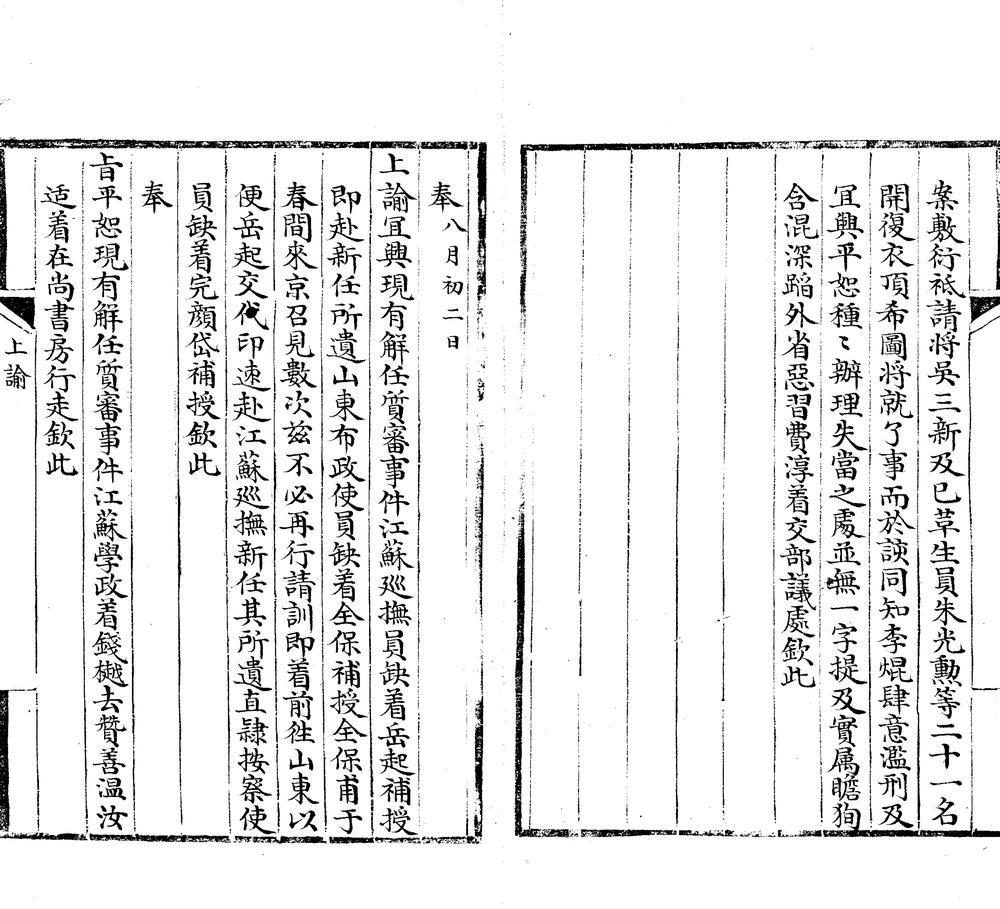 案敷衍祗請将吳三新及已草生員朱光勲等二十一名
開復衣頂希圖将就了事而於該同知李焜肆意濫刑及
冝興平恕種〻辦理失當之處並無一字提及實属瞻狥
含混深蹈外省惡習費淳着交部議處欽此
奉八月初二日
上諭冝興現有解任質審事件江蘇廵撫員缺着岳起補授
即赴新任所遺山東布政使員缺着全保補授全保甫于
春間來京召見數次兹不必再行請訓即着前徃山東以
便岳起交代印速赴江蘇廵撫新任其所遺直隷按察使
員缺着完顔岱補授欽此
奉
㫖平恕現有解任質審事件江蘇學政着錢樾去贊善温汝
适着在尚書房行走欽此
上諭